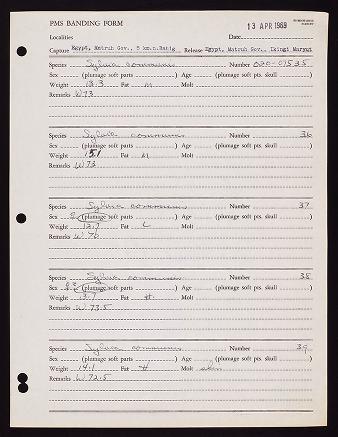 PMS BANDING FORM
Localities
Date 13 APR 1969
Capture Egypt, Matruh Gov., 5 km.n.Bahig Release Egypt, Matruh Gov., Ikingi Maryut
Species Sylvia communis Number 020-07535
Sex (plumage soft parts ) Age (plumage soft pts. skull )
Weight 13.3 Fat M Molt
Remarks W 73
Species Sylvia communis Number 36
Sex (plumage soft parts ) Age (plumage soft pts. skull )
Weight 15.1 Fat M Molt
Remarks W 73
Species Sylvia communis Number 37
Sex (plumage soft parts ) Age (plumage soft pts. skull )
Weight 12.7 Fat L Molt
Remarks W 76
Species Sylvia communis Number 38
Sex (plumage soft parts ) Age (plumage soft pts. skull )
Weight 13.7 Fat H Molt
Remarks W 73.5
Species Sylvia communis Number 39
Sex (plumage soft parts ) Age (plumage soft pts. skull )
Weight 14.1 Fat H Molt skin
Remarks W 72.5